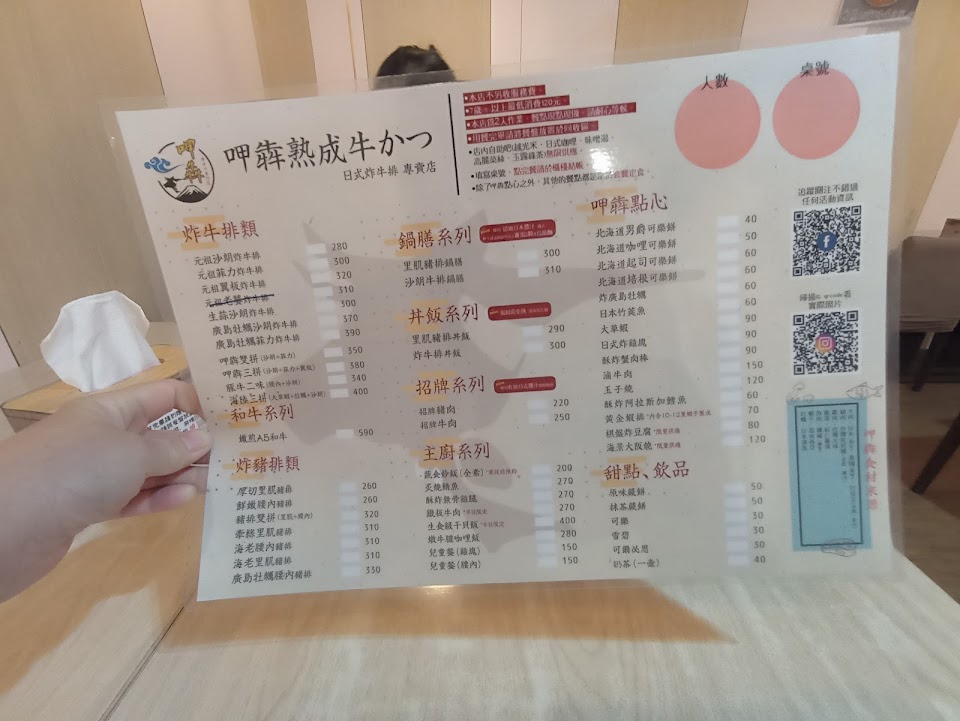 呷犇
呷犇熟成牛かつ
日式炸牛排 專賣店
•本店不另收服務費。
•7歲(含)以上最低消費120元。
•本店為2人作業,餐點現點現做,請耐心等候。
•用餐完畢請將餐盤放置於回收區。
•店內自助吧(越光米、日式咖哩、味噌湯、
高麗菜絲、玉露綠茶)無限供應。
•填寫桌號,點完餐請於櫃檯結帳。
人數
桌號
炸牛排類
元祖沙朗炸牛排 280
元祖菲力炸牛排 300
元祖翼板炸牛排 320
元祖老饕炸牛排 310
生蒜沙朗炸牛排 300
廣島牡蠣沙朗炸牛排 370
廣島牡蠣菲力炸牛排 390
呷犇雙拼(沙朗+菲力) 350
呷犇三拼(沙朗+菲力+翼板) 380
豚牛二味(腰內+沙朗) 340
海陸三拼(大草蝦+牡蠣+沙朗) 400
和牛系列
熾煎A5和牛 590
炸豬排類
厚切里肌豬排 260
鮮嫩腰內豬排 260
豬排雙拼(里肌+腰內) 320
牽絲里肌豬排 310
海老腰內豬排 310
海老里肌豬排 310
廣島牡蠣腰內豬排 330
鍋膳系列
里肌豬排鍋膳 300
沙朗牛排鍋膳 310
丼飯系列
里肌豬排丼飯 290
炸牛排丼飯 300
招牌系列
招牌豬肉 220
招牌牛肉 250
主廚系列
蔬食炒飯(全素) 200
炙燒鯖魚 270
酥炸無骨雞腿 270
鐵板牛肉 270
生食級干貝飯 400
燉牛腱咖哩飯 280
兒童餐(雞塊) 150
兒童餐(腰內) 150
呷犇點心
北海道男爵可樂餅 40
北海道咖哩可樂餅 50
北海道起司可樂餅 60
北海道培根可樂餅 60
炸廣島牡蠣 60
日本竹莢魚 60
大草蝦 60
日式炸雞塊 90
酥炸蟹肉棒 150
滷牛肉 120
玉子燒 60
酥炸阿拉斯加鱈魚 60
黃金蝦排 *內含10-12尾蝦手製成 70
棋盤炸豆腐 *限量供應 80
海景大阪燒 *限量供應 120
甜點、飲品
原味蕨餅 50
抹茶蕨餅 50
可樂 30
雪碧 30
可爾必思 30
奶茶(一壺) 40
追蹤關注不錯過
任何活動資訊
掃描IG qrcode看
實際照片
呷犇食材來源